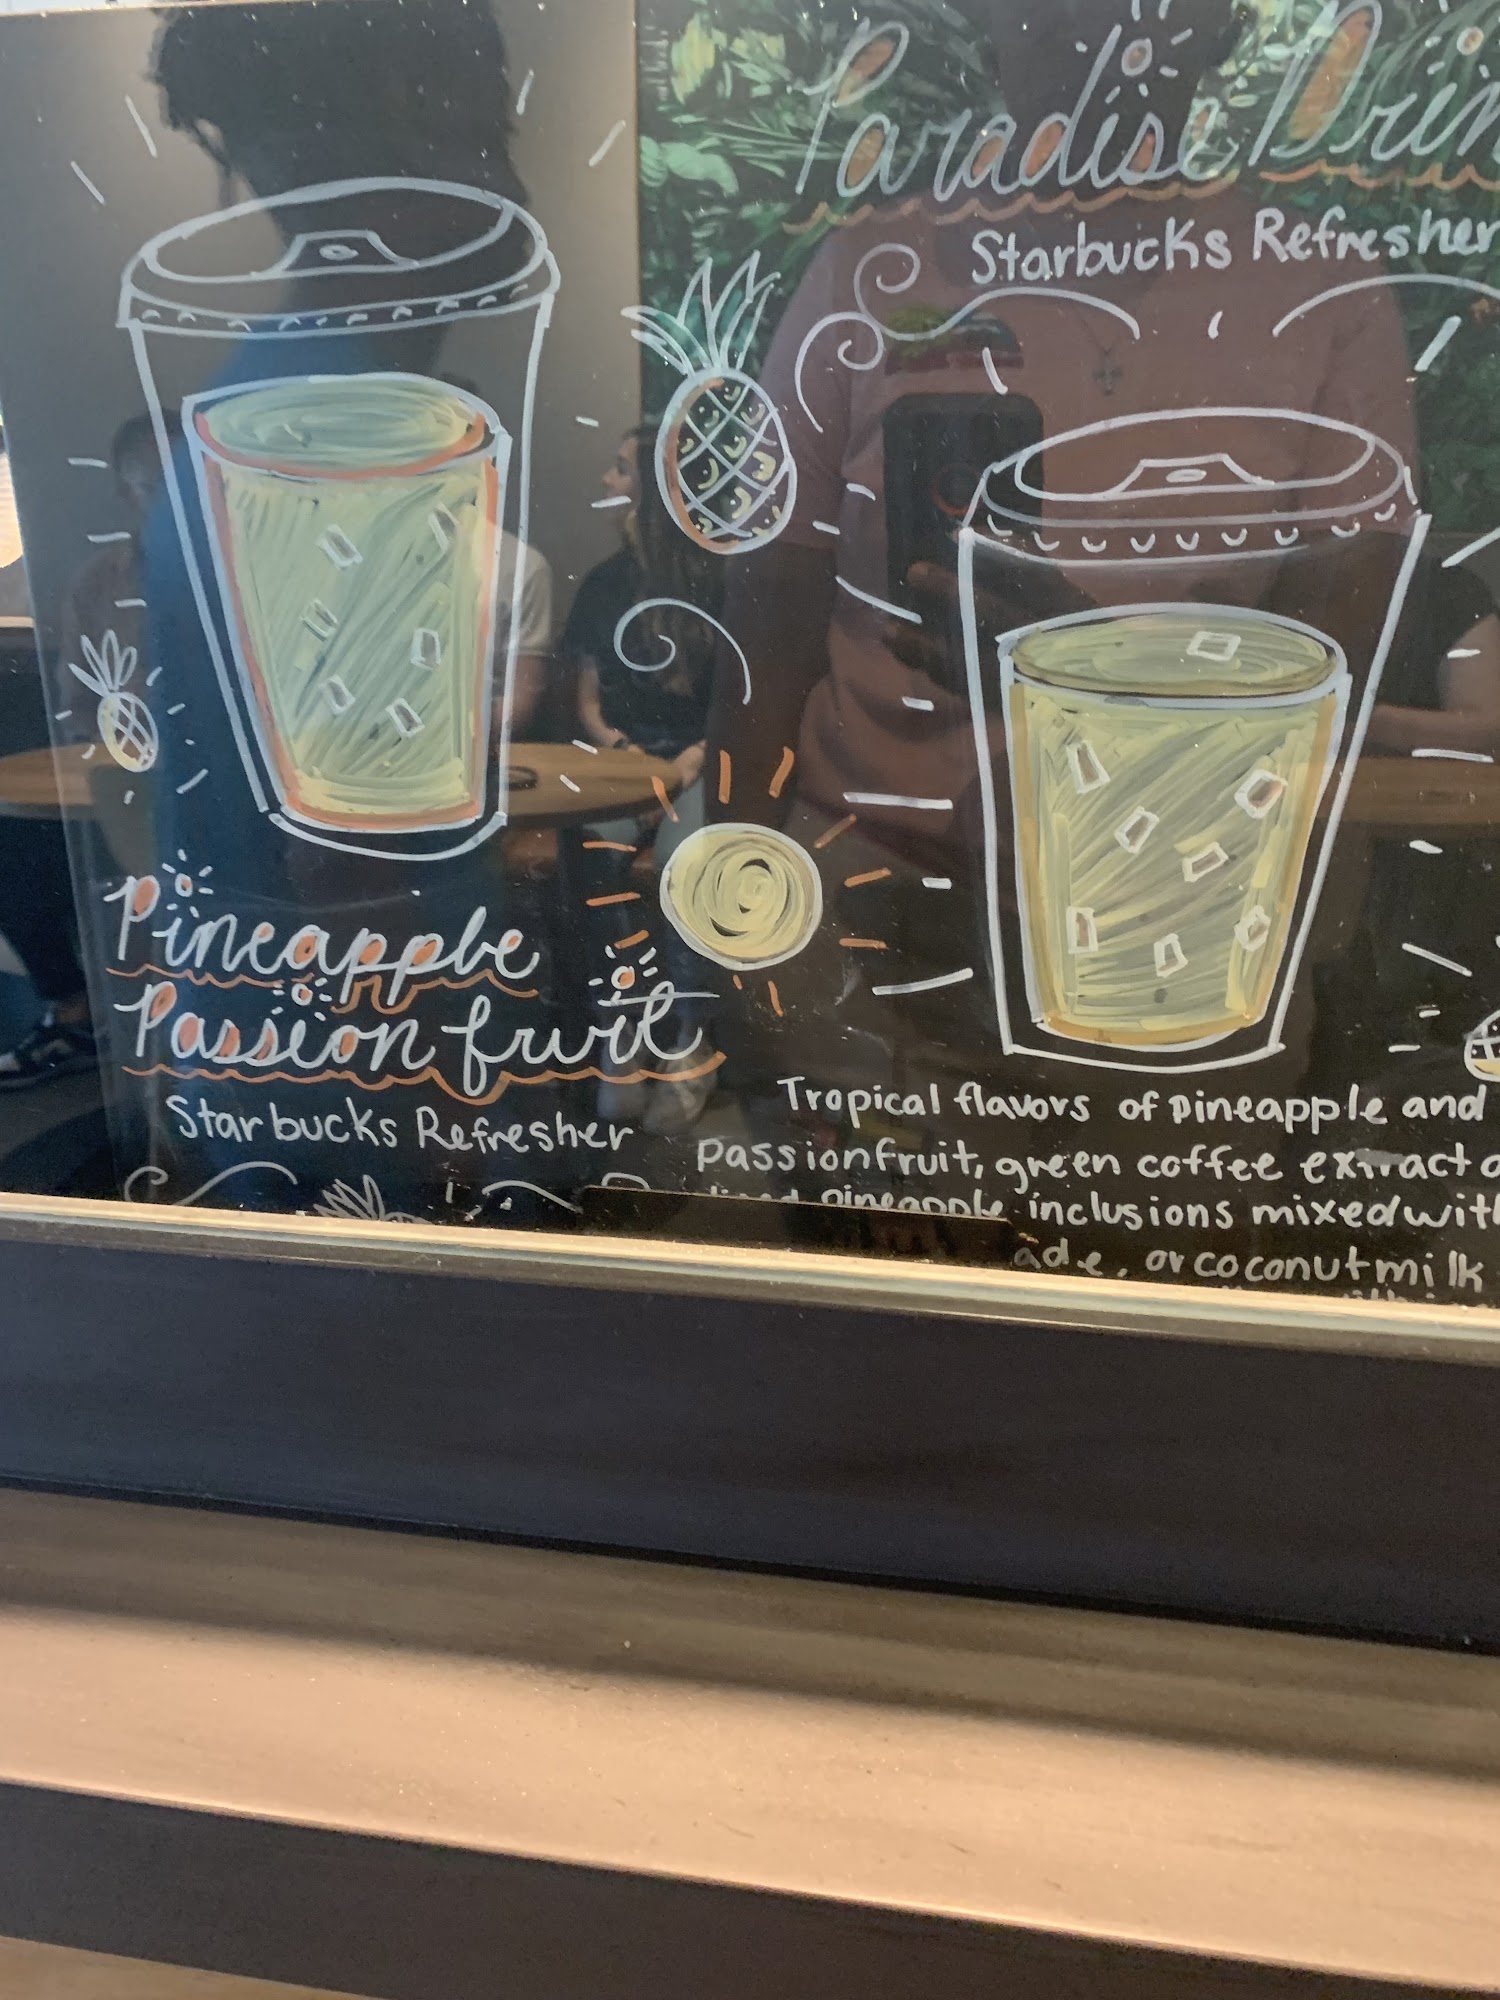 Paradise Drin
Starbucks Refresher
Pineapple
Passion fruit
Starbucks Refresher
Tropical flavors of pineapple and
passionfruit, green coffee extract
pineapple inclusions mixed with
ade, or coconutmilk